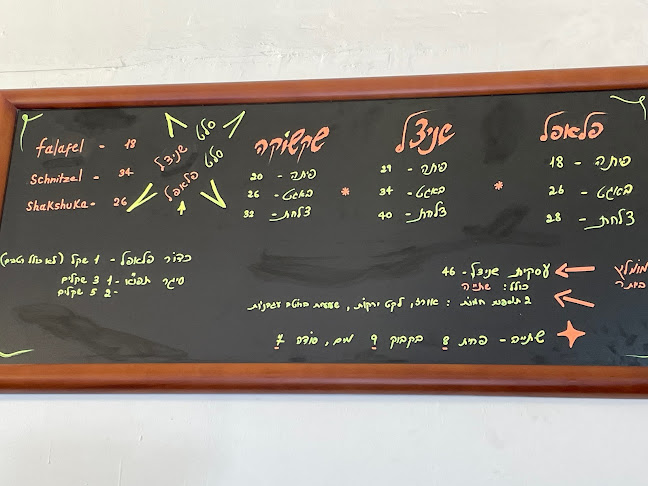 פלאפל
פיתה - 18
באגט - 26
צלחת - 28
שניצל
פיתה - 29
באגט - 34
צלחת - 40
שקשוקה
פיתה - 20
באגט - 26
צלחת - 32
סלט
שניצל
סלט
פלאפל
falafel - 18
Schnitzel - 34
Shakshuka - 26
מומלץ
ביתה
עסקית שניצל - 46
כולל: שתייה
2 תוספות חמות: אורז, לקט ירקות, שעועית ברוטב עגבניות
שתייה - פחית 8 בקבוק 9 מים, סודה 7
כדור פלאפל - 1 שקל
סיגר תפוא - 1 3 שקלים
2 - 5 שקלים